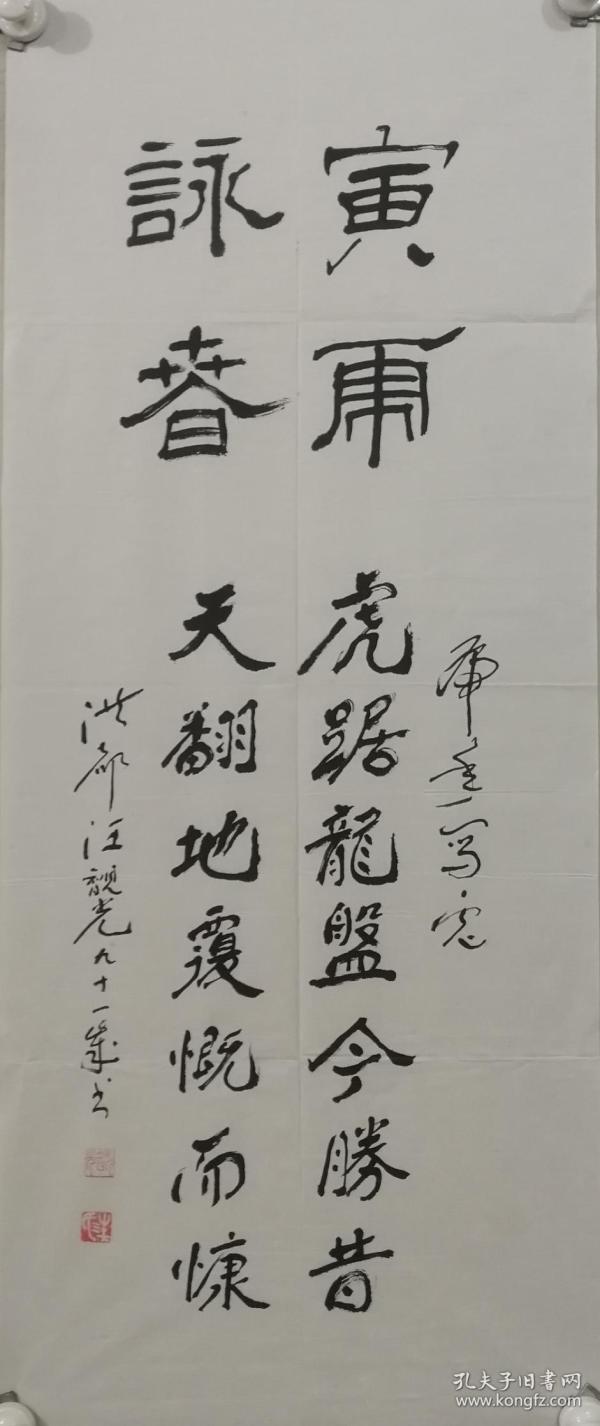 寅乕
詠春
乕年写
虎踞龍盤今勝昔
天翻地覆慨而慷
洪都汪觀光九十一歲书
孔夫子旧書网
www.kongfz.com